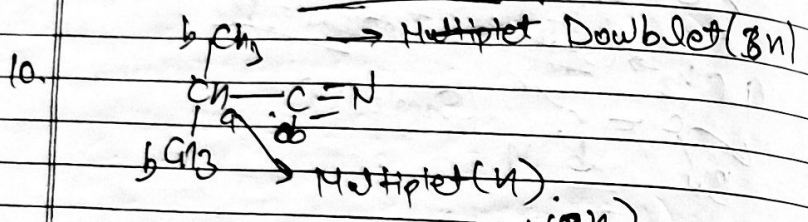 b CH3 → Multiplet Dowblet(6H)
10.
CH—C≡N
a
b CH3 Multiplet(H)